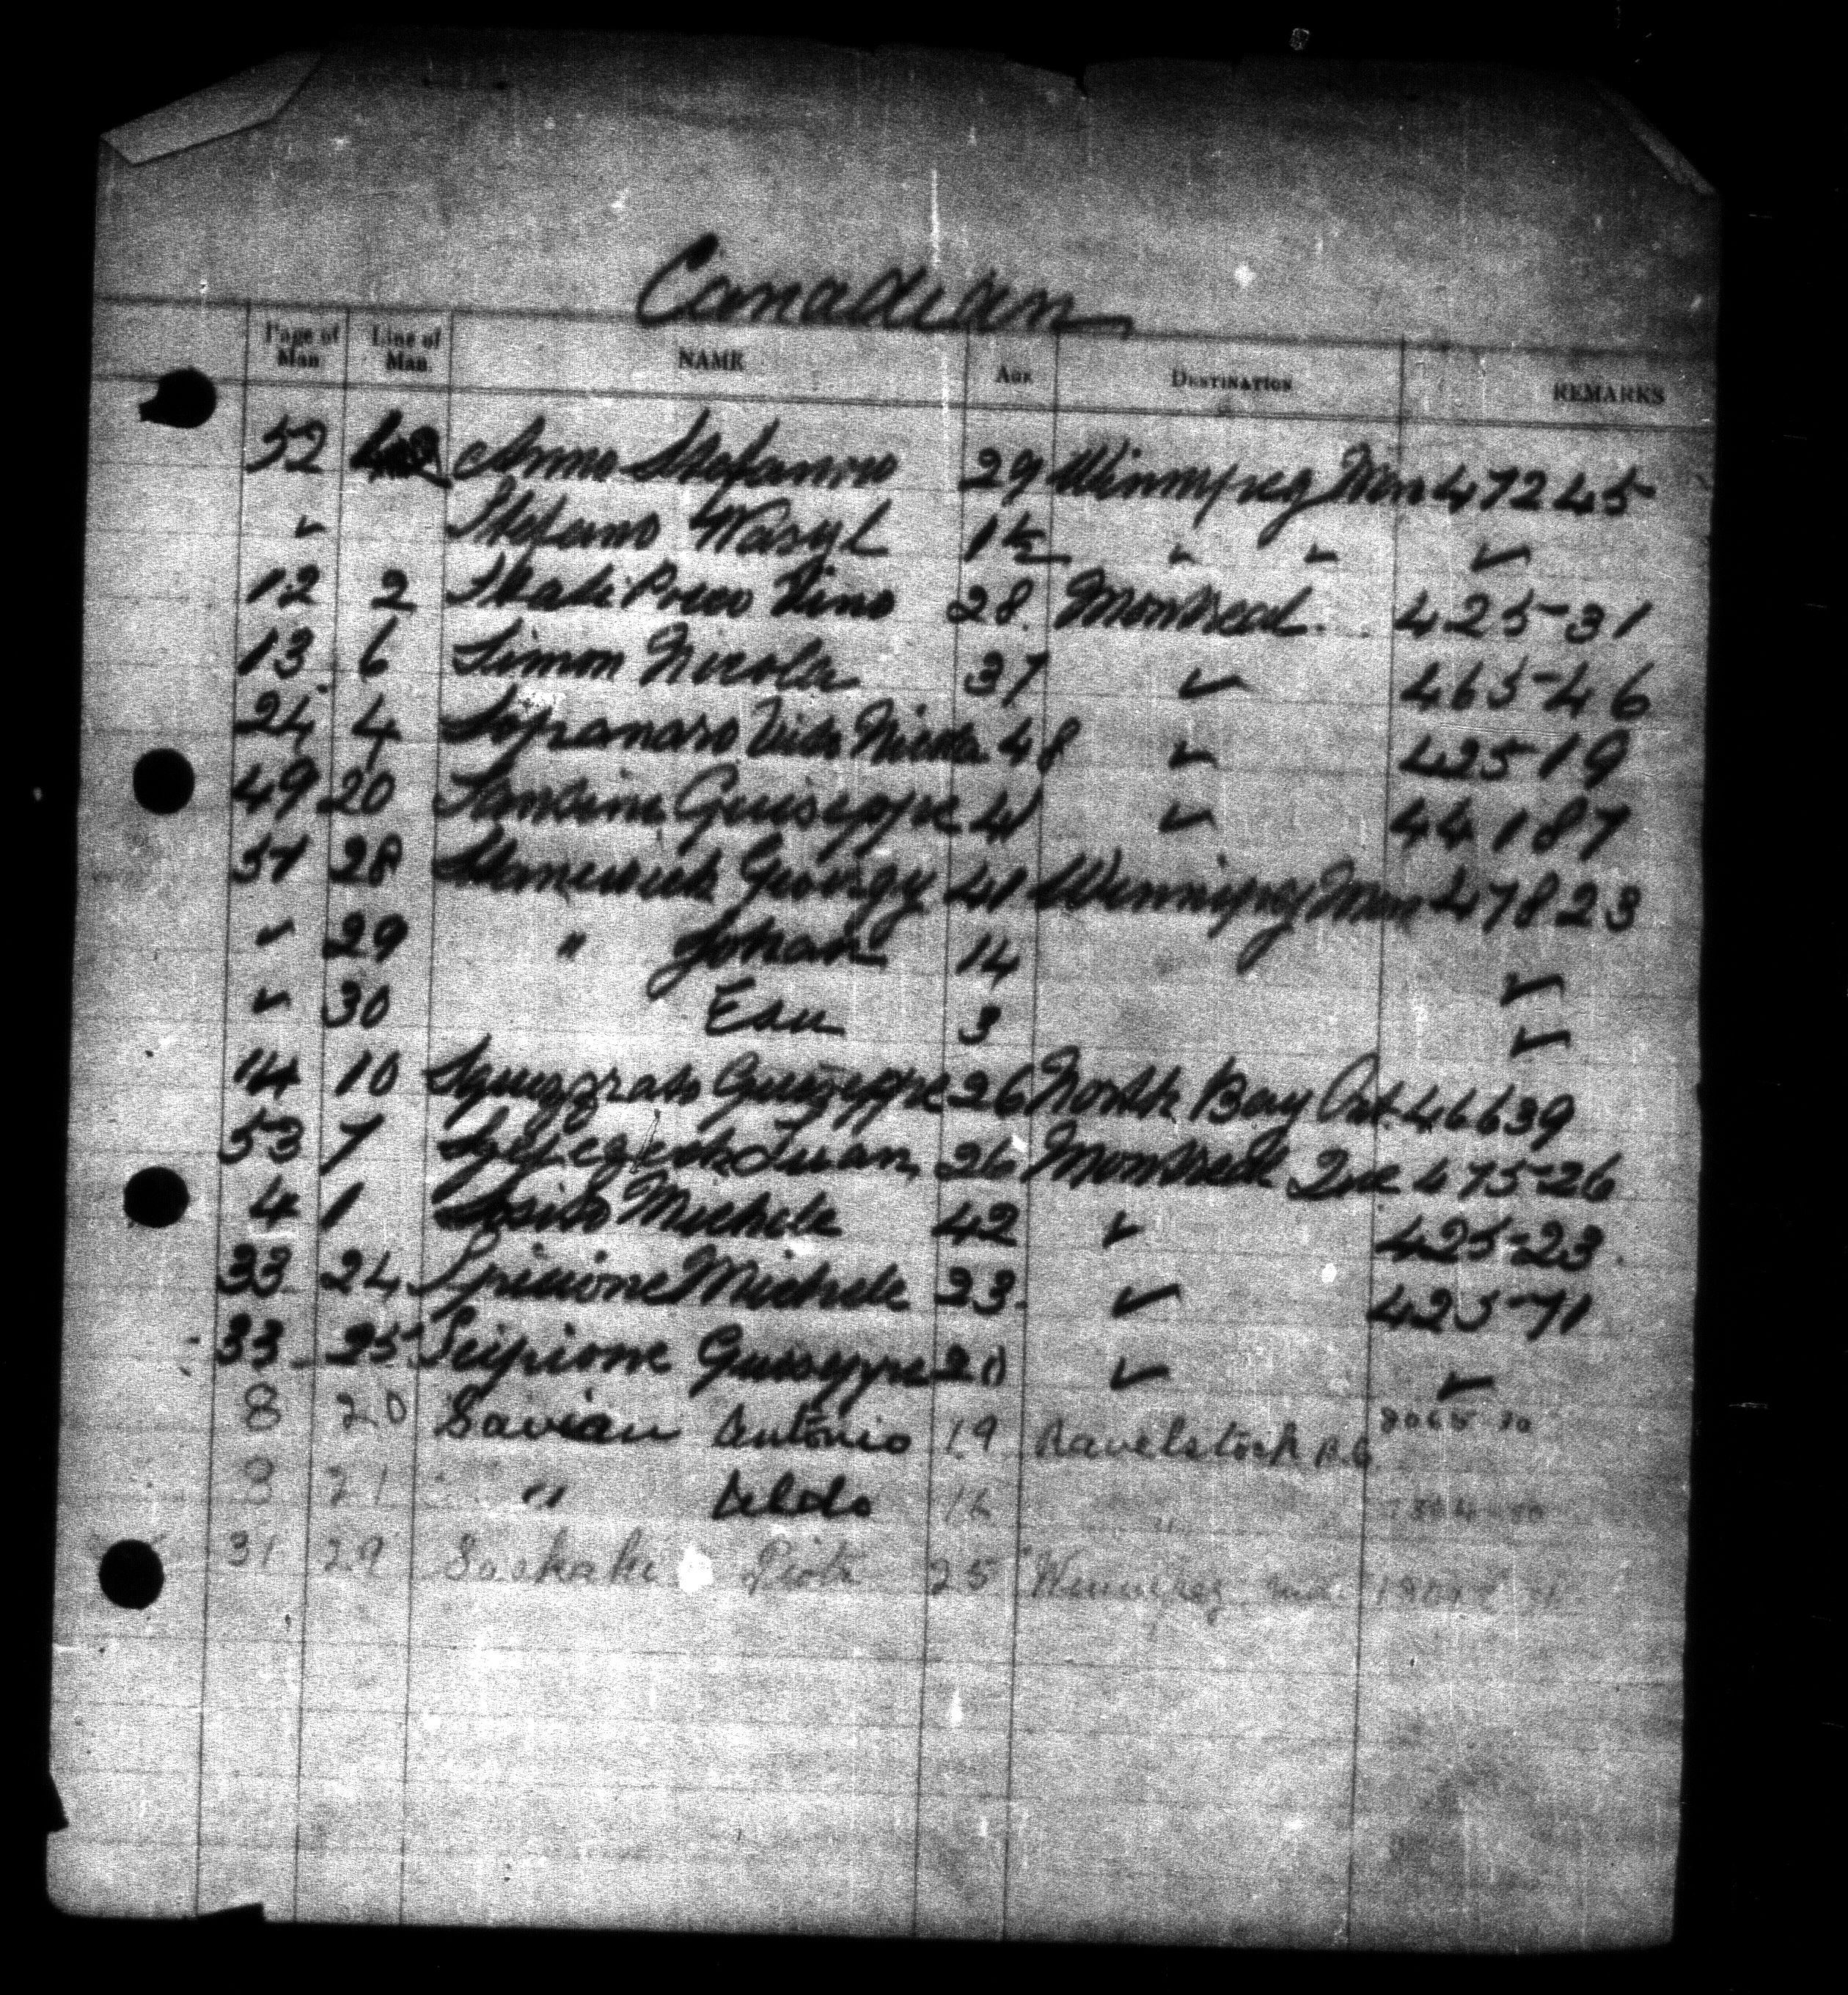 Canadian
Page of Man. Line of Man. NAME AGE DESTINATION REMARKS
52 Anna Stefanow 29 Winnipeg Man 472 45
✓ Stefano Wasyl 1½ ✓ ✓ ✓
12 2 28 Montreal 425-31
13 6 Simon Nicola 37 ✓ 465-46
24 4 Sopranaro Vito Nicola 48 ✓ 425 19
49 20 Guiseppe 41 ✓ 44187
51 28 Georgy 41 Winnipeg Man 47823
✓ 29 " Johan 14 ✓
✓ 30 Esau 3 ✓
14 10 Guiseppe 26 North Bay Ont. 46639
53 7 26 Montreal Que 475-26
4 1 Sosito Michele 42 ✓ 425-23
33 24 Michele 23 ✓ 425-71
33 25 Scipione Guiseppe 20 ✓ ✓
8 20 Savian Antonio 19 Ravelstock B.C
8 21 " Aldo 16 "
31 29 Piotr 25 Winnipeg